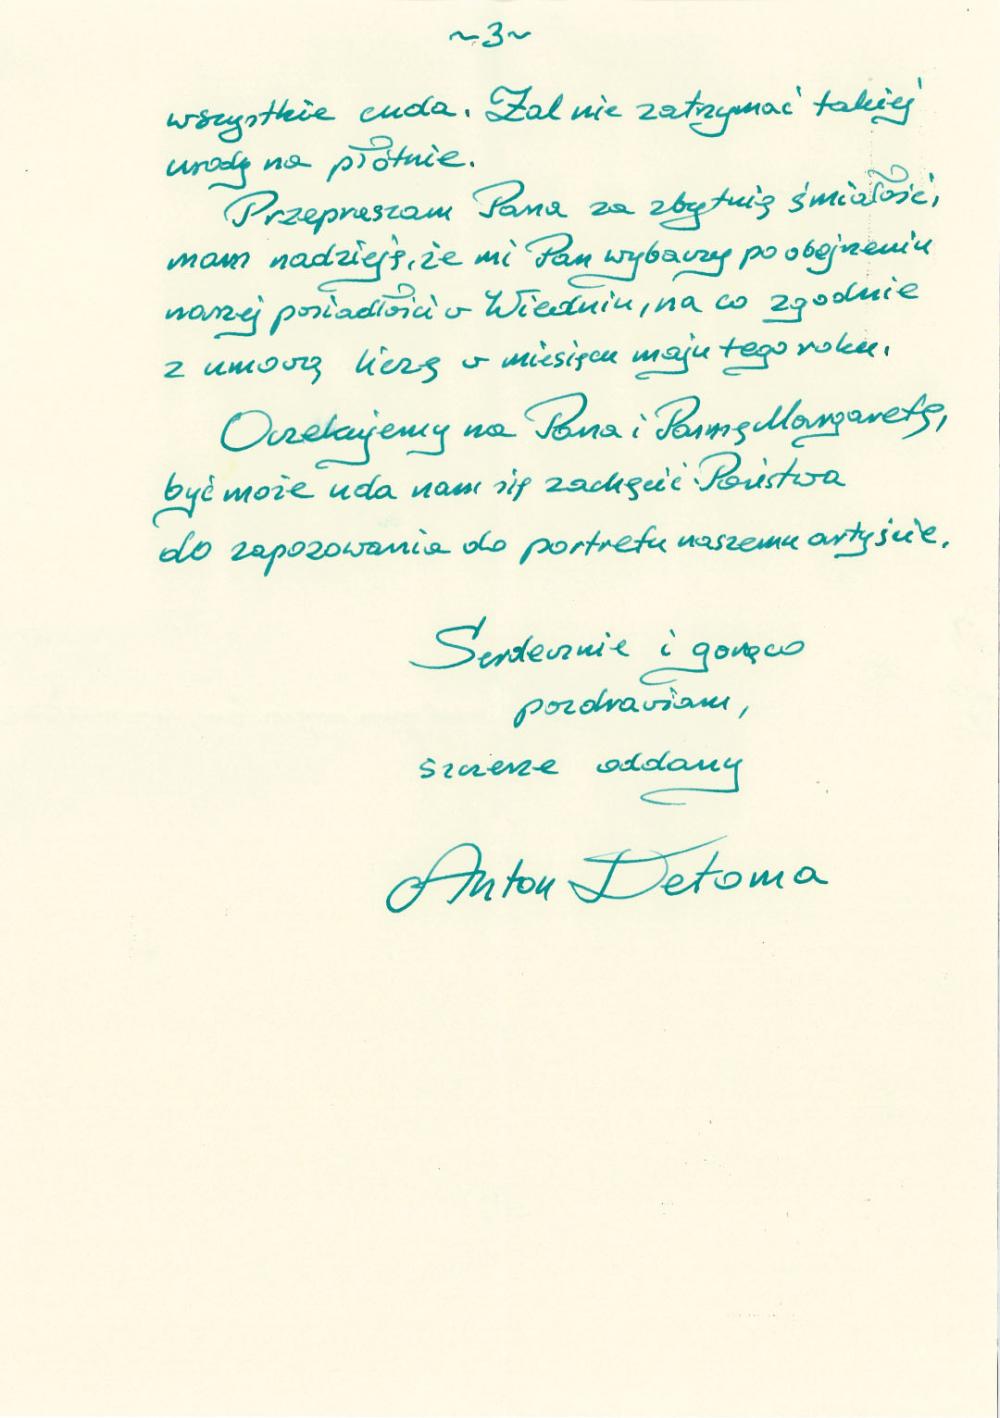 ~3~
wszystkie cuda. Żal nie zatrzymać takiej
urody na płótnie.
Przepraszam Pana za zbytnią śmiałość,
mam nadzieję, że mi Pan wybaczy po obejrzeniu
naszej posiadłości w Wiedniu, na co zgodnie
z umową liczę w miesiącu maju tego roku.
Oczekujemy na Pana i Pannę Margaretę,
być może uda nam się zachęcić Państwa
do zapozowania do portretu naszemu artyście.
Serdecznie i gorąco
pozdrawiam,
szczerze oddany
Anton Detoma